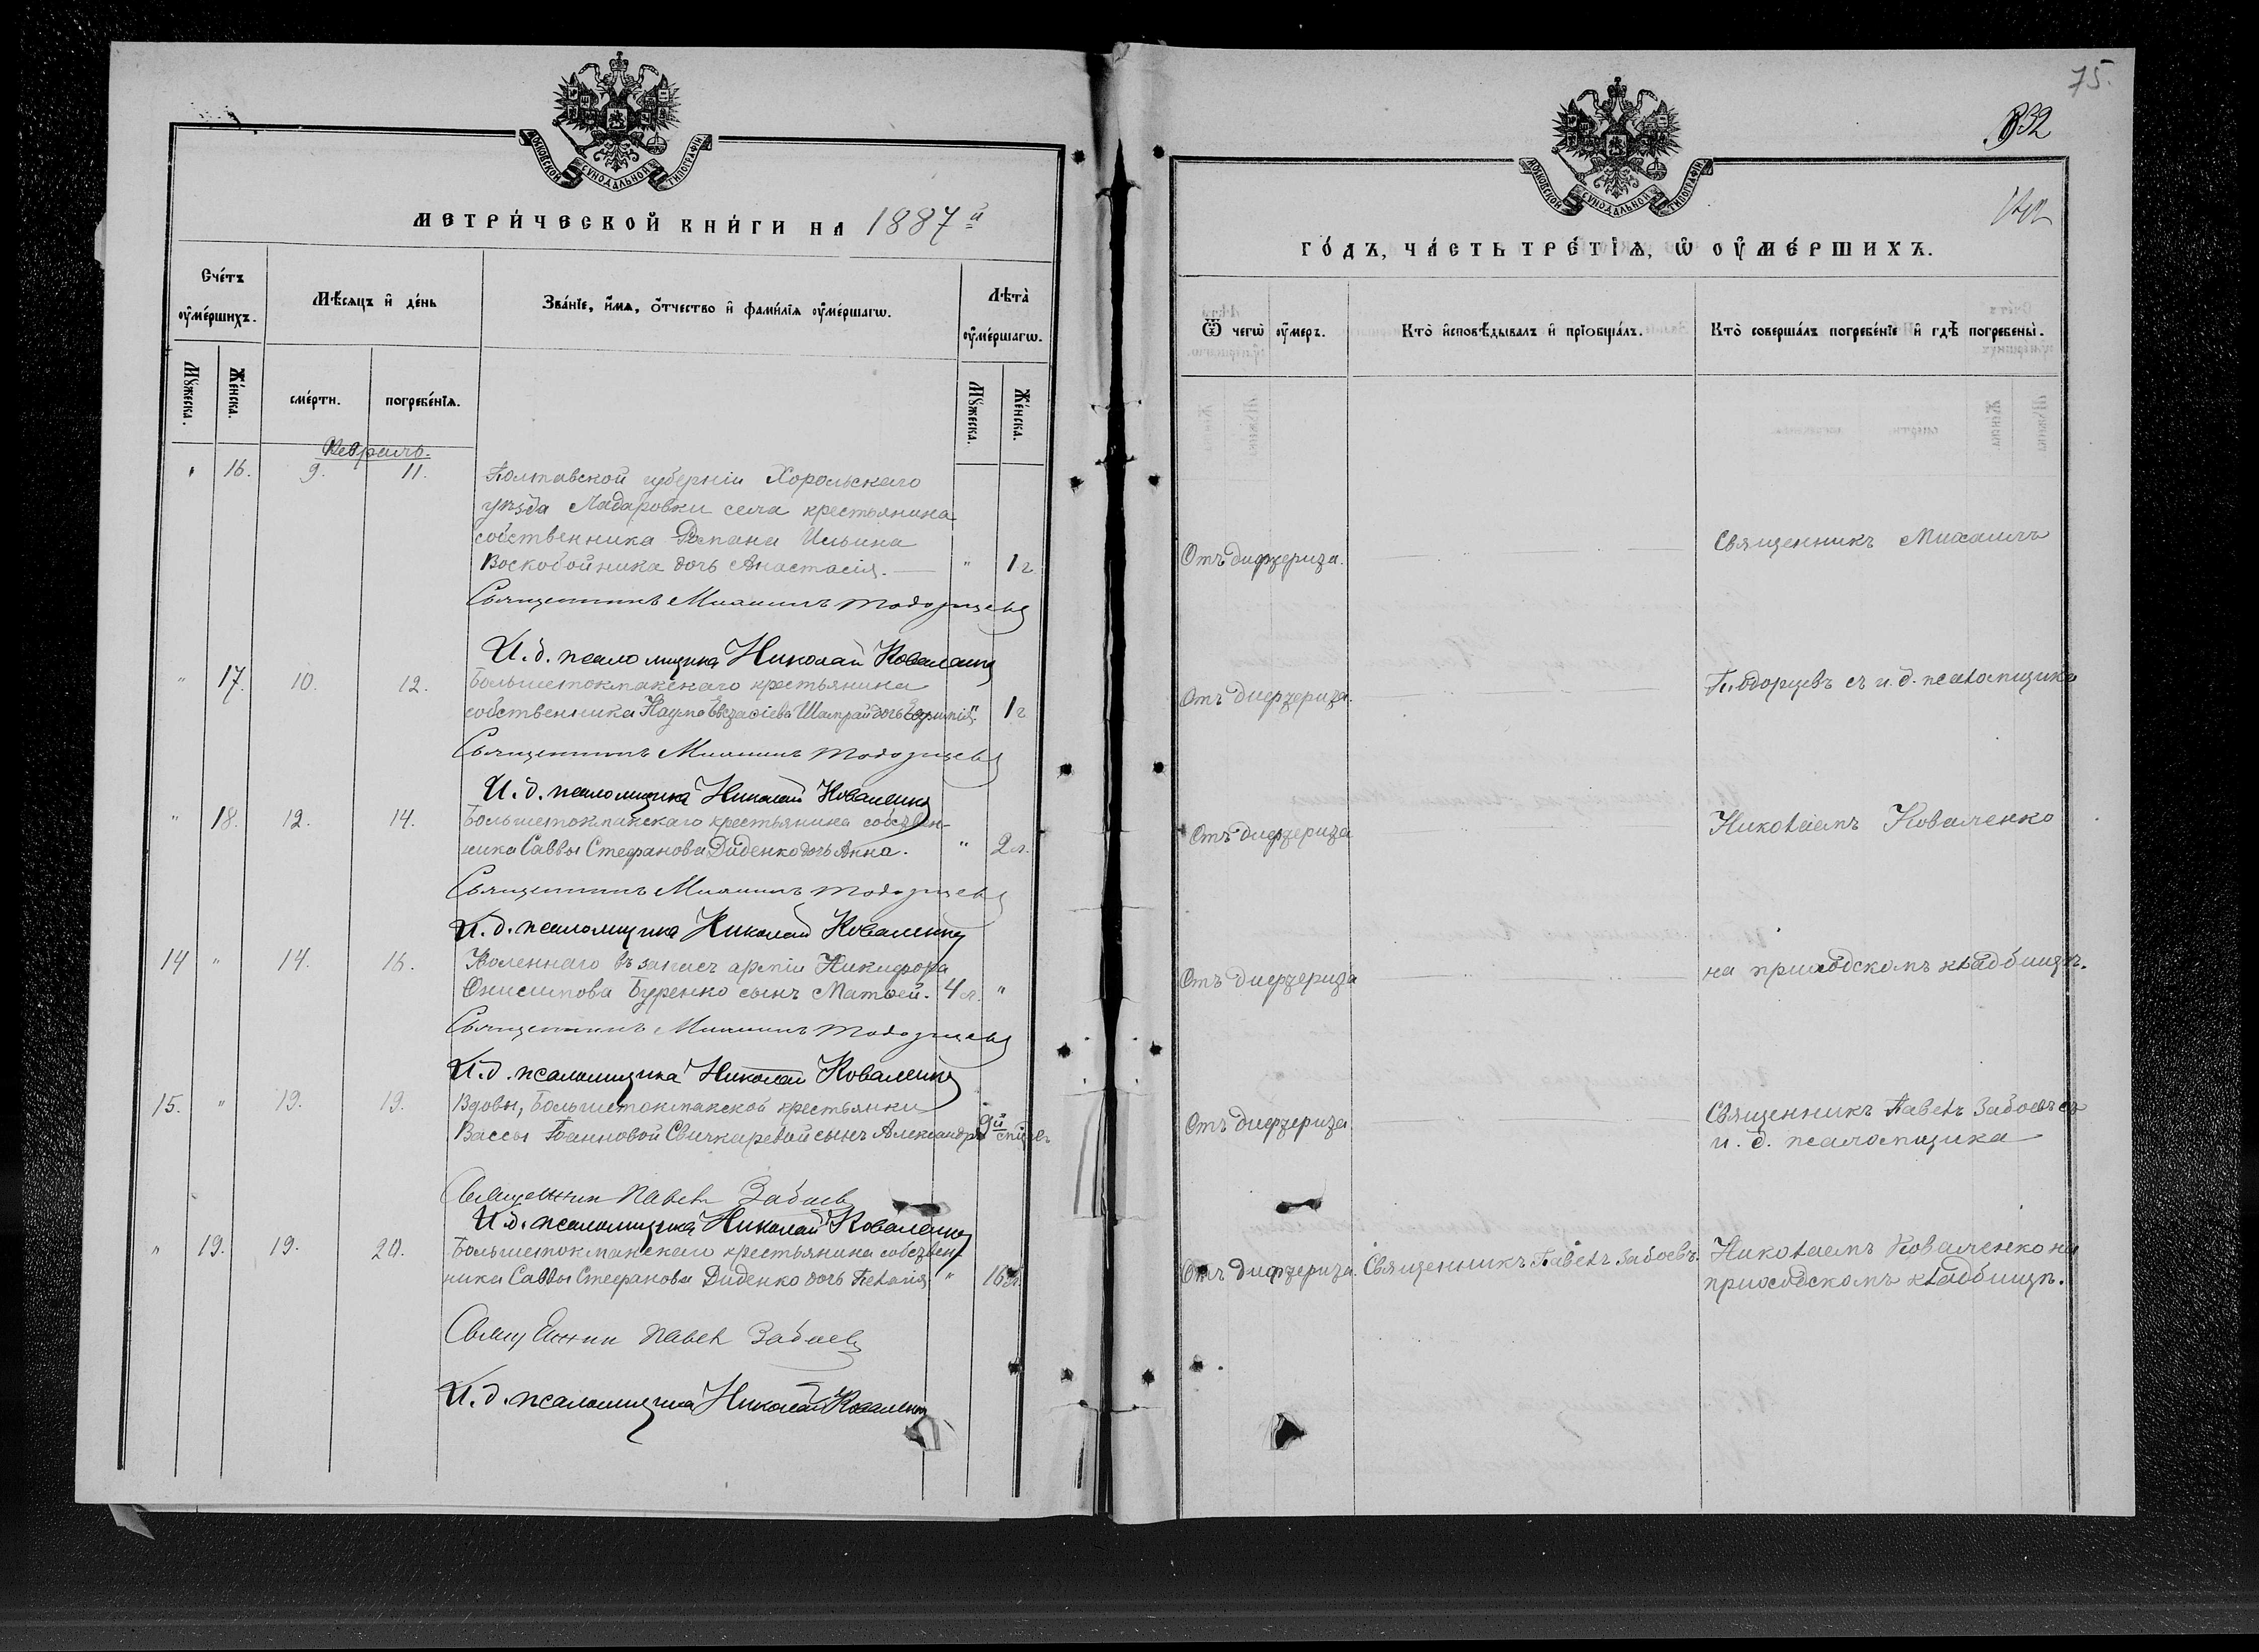 МОСКОВСКОЙ СѴНОДАЛЬНОЙ ТИПОГРАФІИ
МЕТРИ́ЧЕСКОЙ КНИ́ГИ НА 1887й
Сче́тъ оу҆ме́ршихъ.
Мѣ́сяцъ и҆ де́нь
Зва́нїе, и҆́мѧ, ѻ҆́тчество и҆ фами́лїѧ оу҆ме́ршагѡ.
Лѣта̀ оу҆ме́ршагѡ.
Мꙋ́жеска.
Же́нска.
сме́рти.
погребе́нїѧ.
Мꙋ́жеска.
Же́нска.
Февраль.
" 16. 9. 11. Полтавской губерніи Хорольскаго
уѣзда Мадаровки села крестьянина
собственника Ильина
Воскобойника дочь Анастасія. " 1 г
Священникъ Михаилъ Тодорцевъ
И. д. псаломщика Николай Коваленко
" 17. 10. 12. Большетокмакскаго крестьянина
собственника Наума Шапрай дочь " 1 г
Священникъ Михаилъ Тодорцевъ
И. д. псаломщика Николай Коваленко
" 18. 12. 14. Большетокмакскаго крестьянина собствен-
ника Саввы Стефанова Диденко дочь Анна. " 2 л.
Священникъ Михаилъ Тодорцевъ
И. д. псаломщика Николай Коваленко
14 " 14. 16. Уволеннаго въ запасъ арміи Никифора
Онисимова Буренко сынъ Матѳей. 4 л. "
Священникъ Михаилъ Тодорцевъ
И. д. псаломщика Николай Коваленко
15. " 19. 19. Вдовы, Большетокмакской крестьянки
Вассы Іоанновой Свичкаревой сынъ Александръ 9й
Священникъ Павелъ Забаевъ
И. д. псаломщика Николай Коваленко
" 19. 19. 20. Большетокмакскаго крестьянина собствен-
ника Саввы Стефанова Диденко дочь Пелагія " 16 л.
Священникъ Павелъ Забаевъ
И. д. псаломщика Николай Коваленко
75.
832
МОСКОВСКОЙ СѴНОДАЛЬНОЙ ТИПОГРАФІИ
ГО́ДЪ, ЧА́СТЬ ТРЕ́ТЇѦ, Ѡ҆ ОУ҆МЕ́РШИХЪ.
Ѿ чегѡ̀ оу҆́меръ.
Кто̀ и҆сповѣ́дывалъ и҆ прїѻбща́лъ.
Кто̀ соверша́лъ погребе́нїе и҆ гдѣ̀ погребены̀.
Отъ дифтерита.
Священникъ Михаилъ
Отъ дифтерита.
Тодорцевъ съ и. д. псаломщика
Отъ дифтерита
Николаемъ Коваленко
Отъ дифтерита
на приходскомъ кладбищѣ.
Отъ дифтерита
Священникъ Павелъ Забаевъ съ
и. д. псаломщика
Отъ дифтерита. Священникъ Павелъ Забаевъ. Николаемъ Коваленко на
приходскомъ кладбищѣ.